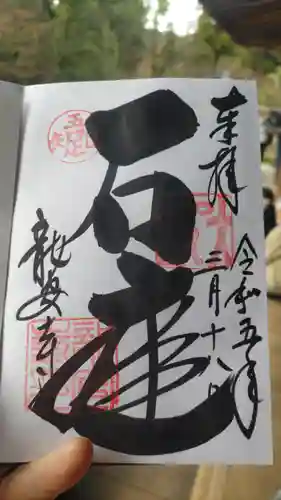 奉拝
令和五年
三月十八日
石庭
龍安寺